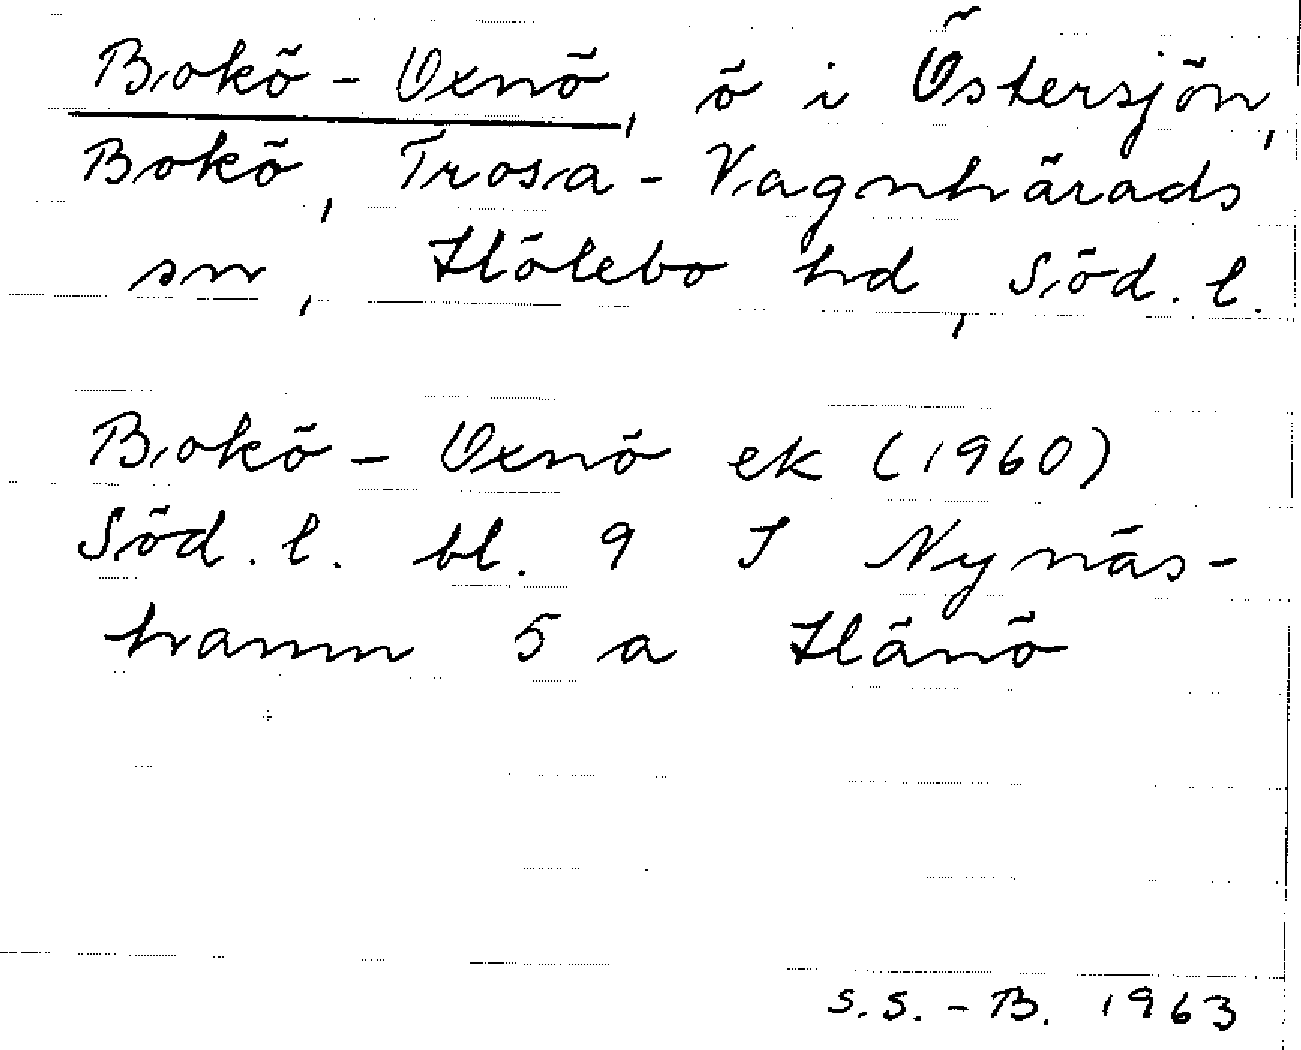 Bokö-Oxnö, ö i Östersjön,
Bokö, Trosa-Vagnhärads
sn, Hölebo hd, Söd. l.
Bokö-Oxnö ek (1960)
Söd. l. bl. 9 I Nynäs-
hamn 5 a Hånö
S.S.-B. 1963